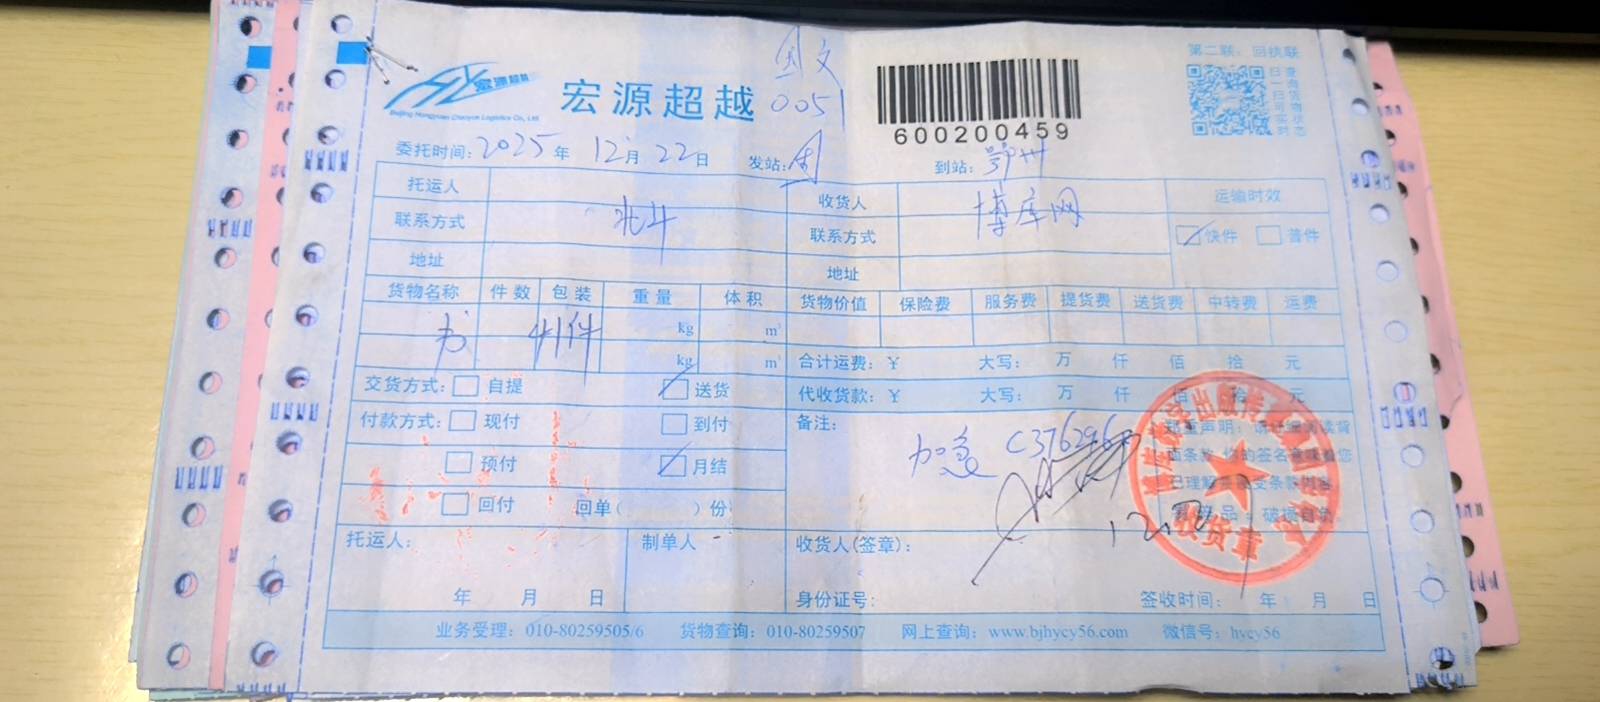 第二联：回执联
国文
0051
宏源超越
宏源超越
Beijing Hongyuan Chaoyue Logistics Co., Ltd
600200459
扫一扫可实时
查询货物状态
委托时间：2025年 12月 22日 发站： 到站：鄂州
托运人 收货人 博库网 运输时效
联系方式 北斗 联系方式 快件 普件
地址 地址
货物名称 件数 包装 重量 体积 货物价值 保险费 服务费 提货费 送货费 中转费 运费
书 41件 kg m³
kg m³ 合计运费：¥ 大写： 万 仟 佰 拾 元
交货方式： 自提 送货 代收货款：¥ 大写： 万 仟 佰 拾 元
付款方式： 现付 到付 备注：
加急 C376296
预付 月结
回付 回单( )份
郑重声明：请仔细阅读背
面条款，您的签名意味着您
已理解并接受条款内容
易碎品，破损自负
收货章
托运人： 制单人 收货人(签章)：
年 月 日 身份证号： 签收时间： 年 月 日
业务受理：010-80259505/6 货物查询：010-80259507 网上查询：www.bjhycy56.com 微信号：hycy56